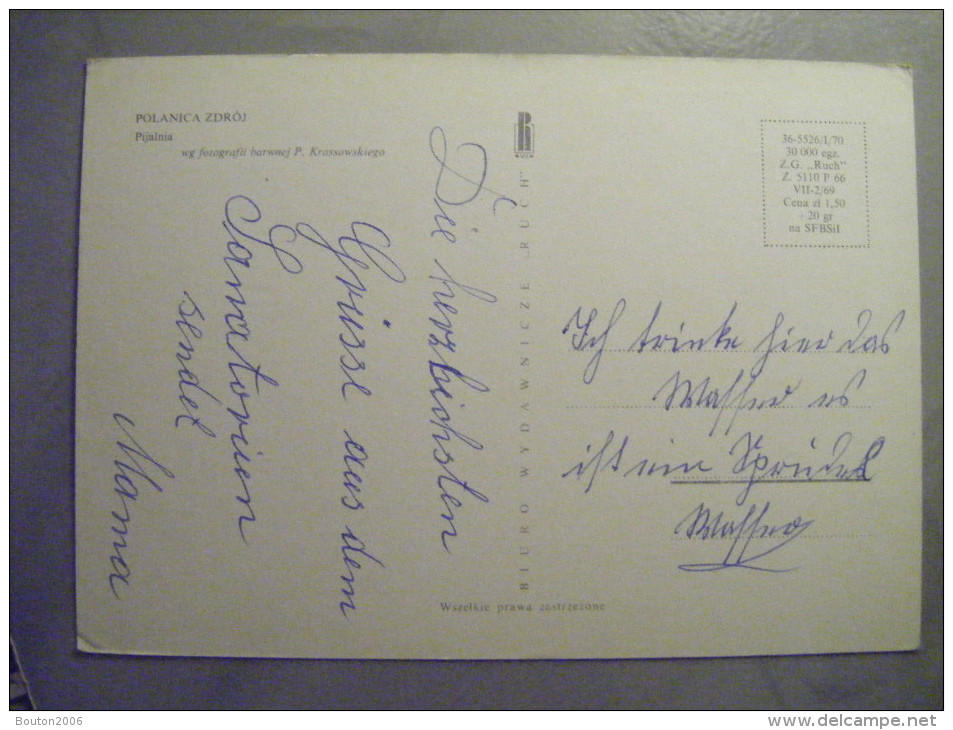 POLANICA ZDRÓJ
Pijalnia
wg fotografii barwnej P. Krassowskiego
Die herzlichsten
Grüsse aus dem
Sanatorium
sendet
Mama
R
RUCH
BIURO WYDAWNICZE „RUCH”
36-5526/I/70
30 000 egz.
Z.G. „Ruch”
Z. 5110 P 66
VII-2/69
Cena zł 1,50
+ 20 gr
na SFBSiI
Ich trinke hier das
Wasser es
ist ein Sprudel
Wasser
Wszelkie prawa zastrzeżone
Bouton2006
www.delcampe.net